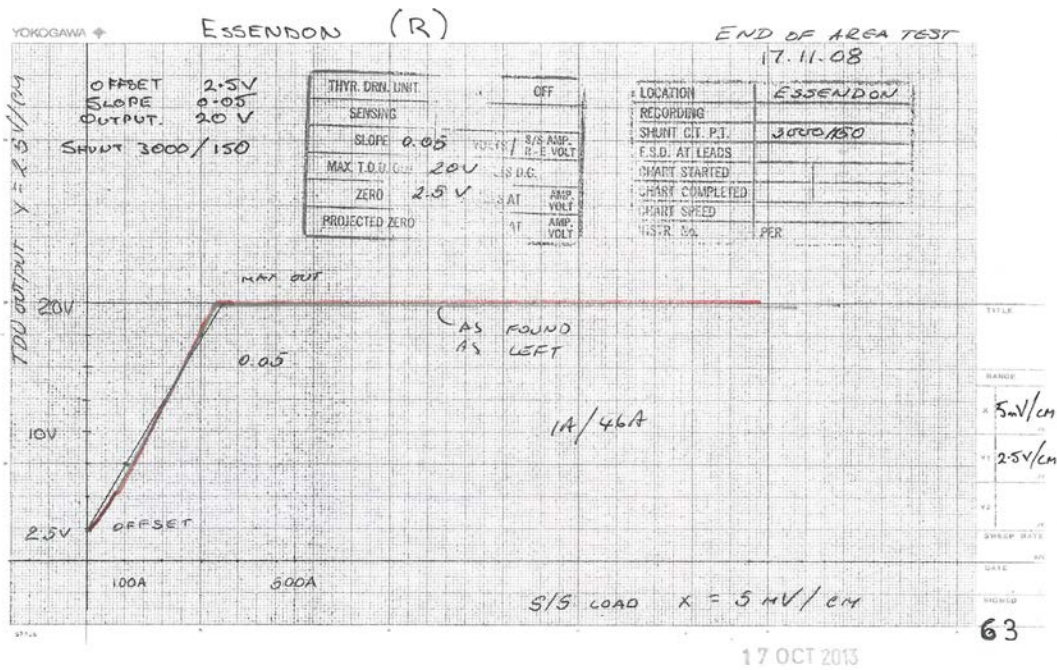 YOKOGAWA
ESSENDON (R)
END OF AREA TEST
17.11.08
OFFSET 2.5V
SLOPE 0.05
OUTPUT. 20 V
SHUNT 3000/150
THYR. DRN. UNIT OFF
SENSING
SLOPE 0.05 VOLTS / S/S AMP. R-E VOLT
MAX T.D.U. 20V D.C.
ZERO 2.5 V AT AMP. VOLT
PROJECTED ZERO AT AMP. VOLT
LOCATION ESSENDON
RECORDING
SHUNT C.T. P.T. 3000/150
F.S.D. AT LEADS
CHART STARTED
CHART COMPLETED
CHART SPEED PER
TDU OUTPUT Y = 2.5V/CM
MAX OUT
20V
AS FOUND
AS LEFT
0.05
1A/46A
10V
2.5V
OFFSET
100A
500A
S/S LOAD X = 5 MV/CM
TITLE
RANGE
X 5mV/CM
Y1 2.5V/CM
Y2
SWEEP RATE
DATE
SIGNED
63
17 OCT 2013